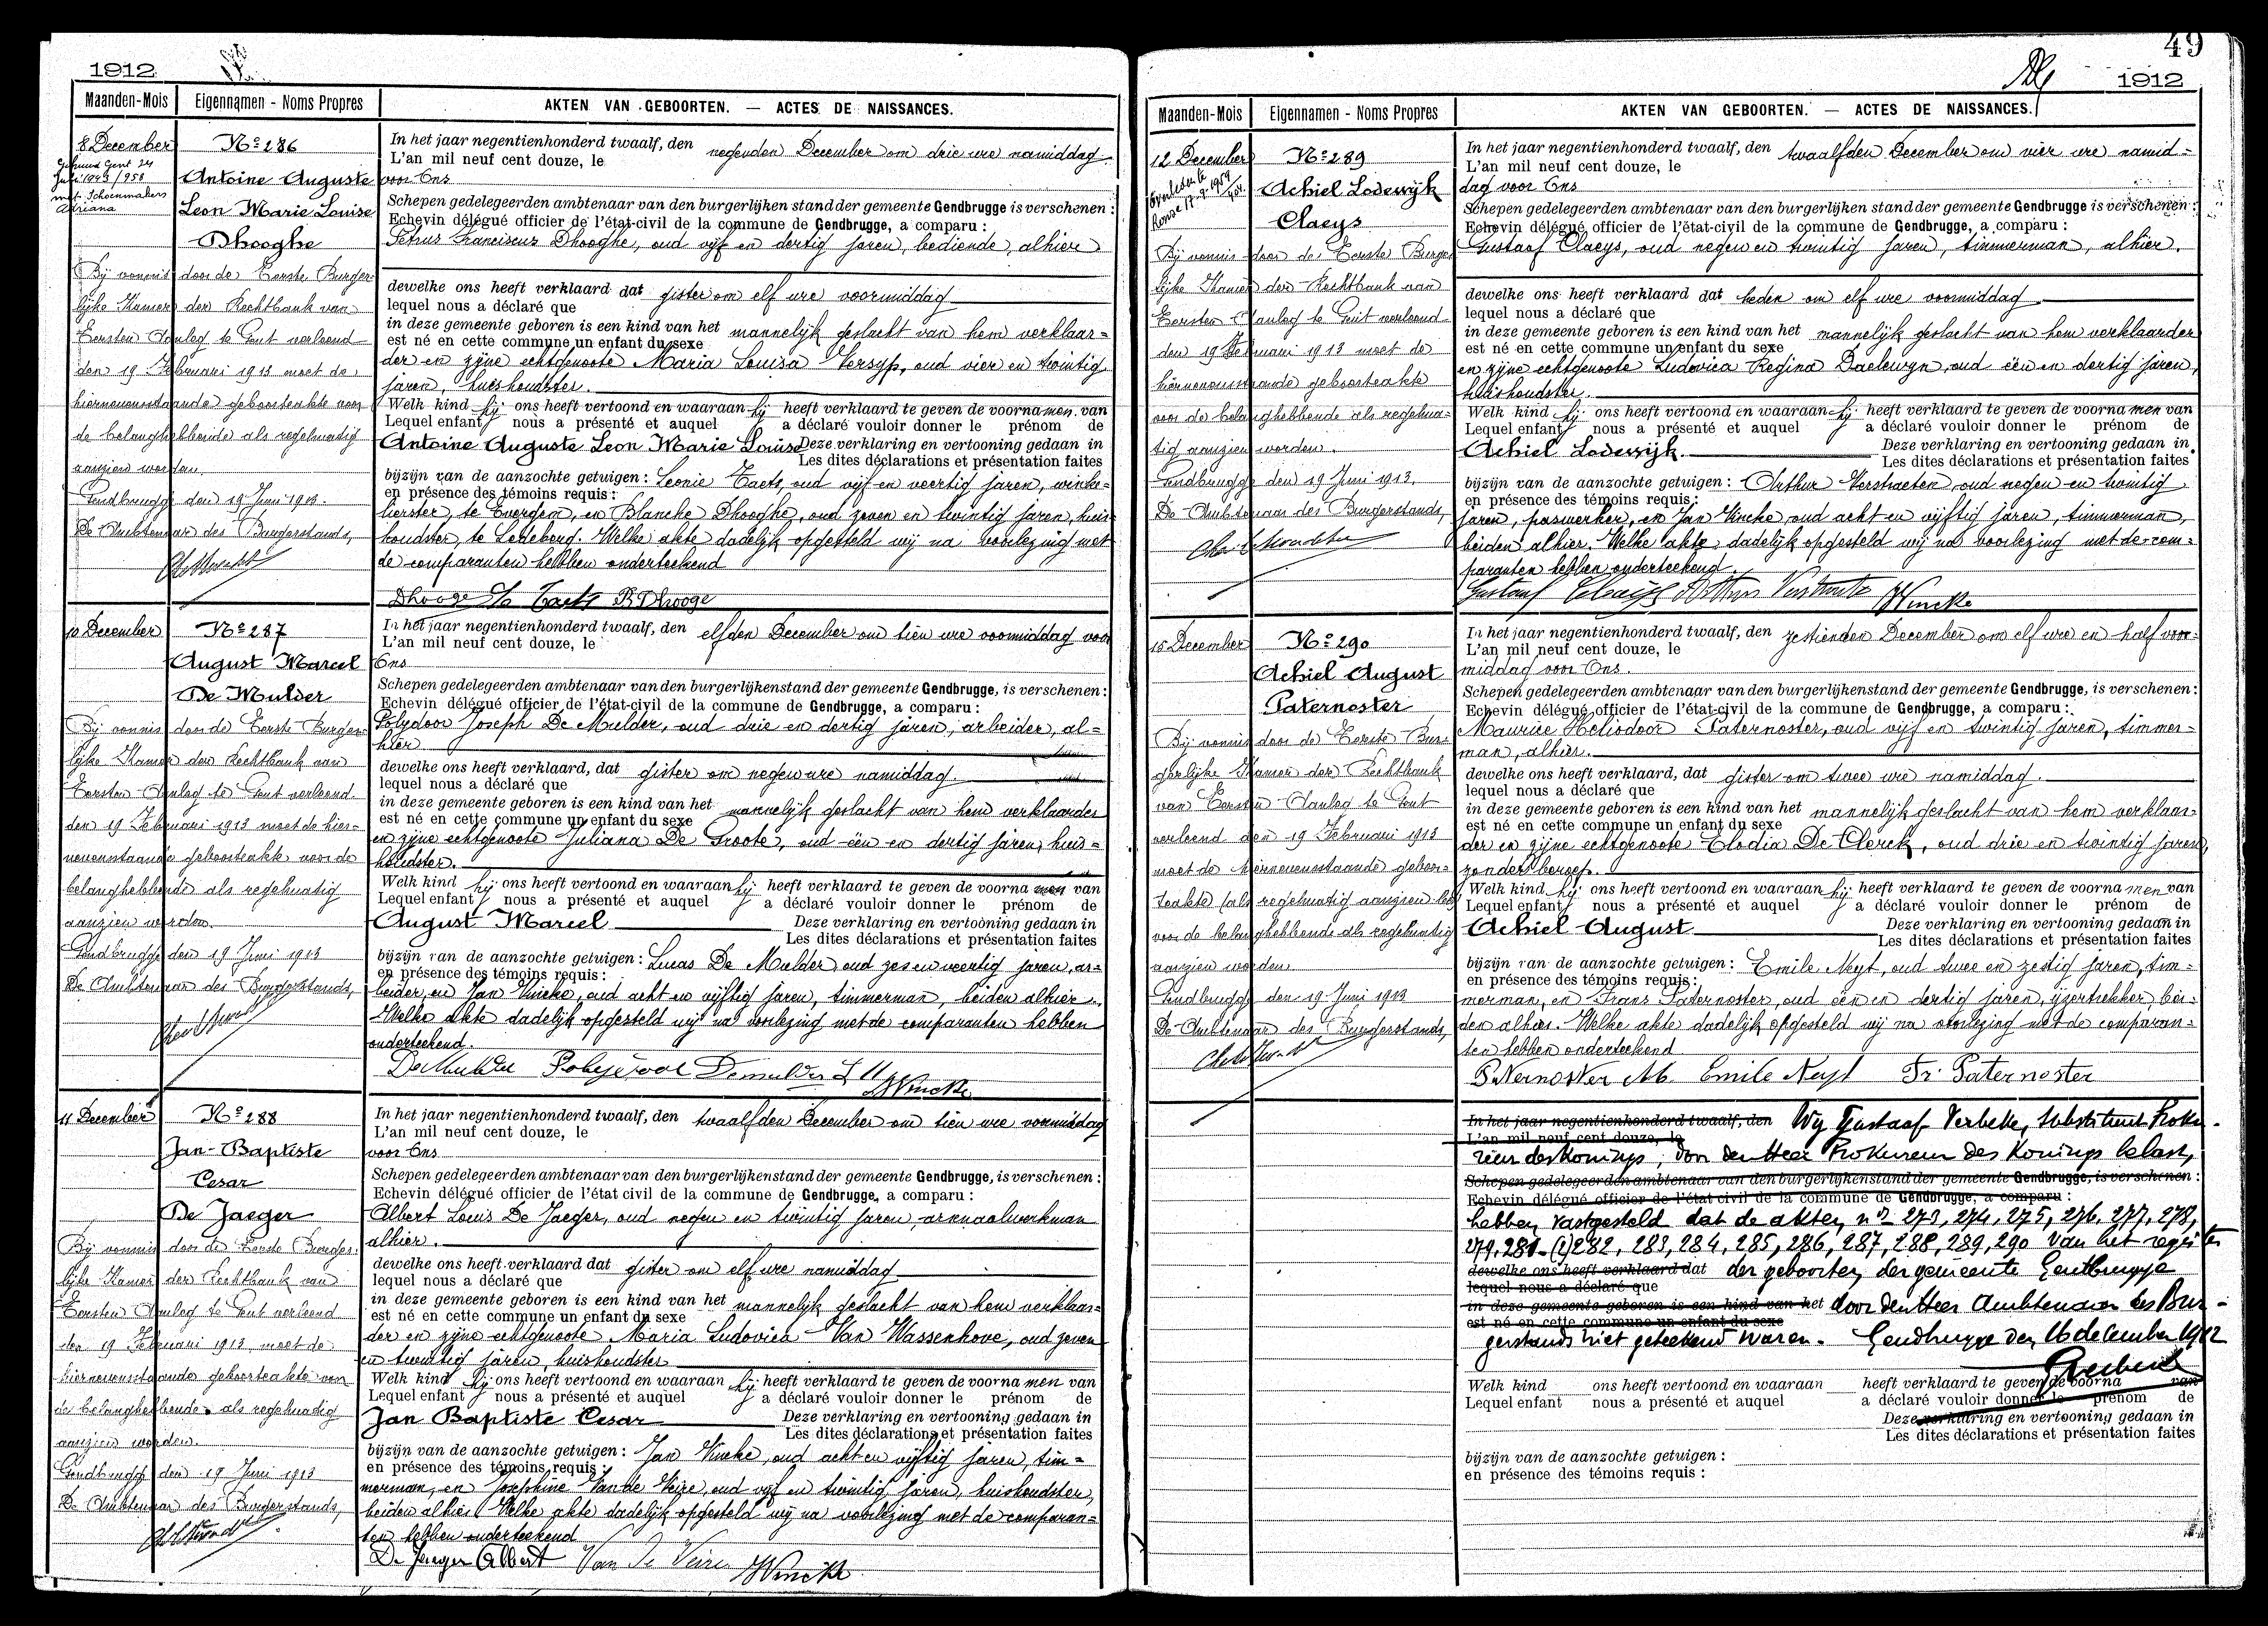 1912
Maanden-Mois Eigennamen - Noms Propres AKTEN VAN GEBOORTEN. — ACTES DE NAISSANCES.
8 December
Gehuwd Gent 24
Juli 1943/958
met Schoenmakers
Adriana
Nº 286
Antoine Auguste
Leon Marie Louise
Dhooghe
Bij vonnis door de Eerste Burger-
lijke Kamer der Rechtbank van
Eersten Aanleg te Gent verleend
den 19 Februari 1913 moet de
hiernevenstaande geboorteakte voor
de belanghebbende als regelmatig
aanzien worden.
Gendbrugge den 19 Juni 1913.
De Ambtenaar des Burgerstands,
In het jaar negentienhonderd twaalf, den negenden December om drie ure namiddag
L'an mil neuf cent douze, le
voor Ons
Schepen gedelegeerden ambtenaar van den burgerlijken stand der gemeente Gendbrugge is verschenen :
Echevin délégué officier de l'état-civil de la commune de Gendbrugge, a comparu :
Petrus Franciscus Dhooghe, oud vijf en dertig jaren, bediende, alhier
dewelke ons heeft verklaard dat gister om elf ure voormiddag
lequel nous a déclaré que
in deze gemeente geboren is een kind van het mannelijk geslacht van hem verklaar=
est né en cette commune un enfant du sexe
der en zijne echtgenoote Maria Louisa Versyp, oud vier en twintig
jaren, huishoudster.
Welk kind hij ons heeft vertoond en waaraan hij heeft verklaard te geven de voornamen van
Lequel enfant nous a présenté et auquel a déclaré vouloir donner le prénom de
Antoine Auguste Leon Marie Louise Deze verklaring en vertooning gedaan in
Les dites déclarations et présentation faites
bijzijn van de aanzochte getuigen : Leonie Taets, oud vijf en veertig jaren, winke=
en présence des témoins requis :
lierster, te Evergem, en Blanche Dhooghe, oud zeven en twintig jaren, huis=
houdster, te Ledeberg. Welke akte dadelijk opgesteld wij na voorlezing met
de comparanten hebben onderteekend
Dhooge L. Taets B Dhooge
10 December
Nº 287
August Marcel
De Mulder
Bij vonnis door de Eerste Burger=
lijke Kamer der Rechtbank van
Eersten Aanleg te Gent verleend
den 19 Februari 1913 moet de hier-
nevenstaande geboorteakte voor de
belanghebbende als regelmatig
aanzien worden.
Gendbrugge den 19 Juni 1913
De Ambtenaar des Burgerstands,
In het jaar negentienhonderd twaalf, den elfden December om tien ure voormiddag voor
L'an mil neuf cent douze, le
Ons
Schepen gedelegeerden ambtenaar van den burgerlijkenstand der gemeente Gendbrugge, is verschenen :
Echevin délégué officier de l'état-civil de la commune de Gendbrugge, a comparu :
Polydoor Joseph De Mulder, oud drie en dertig jaren, arbeider, al=
hier
dewelke ons heeft verklaard, dat gister om negen ure namiddag.
lequel nous a déclaré que
in deze gemeente geboren is een kind van het mannelijk geslacht van hem verklaarder
est né en cette commune un enfant du sexe
en zijne echtgenoote Juliana De Groote, oud één en dertig jaren, huis=
houdster.
Welk kind hij ons heeft vertoond en waaraan hij heeft verklaard te geven de voornamen van
Lequel enfant nous a présenté et auquel a déclaré vouloir donner le prénom de
August Marcel Deze verklaring en vertooning gedaan in
Les dites déclarations et présentation faites
bijzijn van de aanzochte getuigen : Lucas De Mulder, oud zes en veertig jaren, ar=
en présence des témoins requis :
beider, en Jan Vincke, oud acht en vijftig jaren, timmerman, beiden alhier.
Welke akte dadelijk opgesteld wij na voorlezing met de comparanten hebben
onderteekend.
De Mulder Polydoor Demulder L JVincke
11 December
Nº 288
Jan-Baptiste
Cesar
De Jaeger
Bij vonnis door de Eerste Burger-
lijke Kamer der Rechtbank van
Eersten Aanleg te Gent verleend
den 19 Februari 1913, moet de
hiernevenstaande geboorteakte voor
de belanghebbende als regelmatig
aanzien worden.
Gendbrugge den 19 Juni 1913
De Ambtenaar des Burgerstands,
In het jaar negentienhonderd twaalf, den twaalfden December om tien ure voormiddag
L'an mil neuf cent douze, le
voor Ons
Schepen gedelegeerden ambtenaar van den burgerlijkenstand der gemeente Gendbrugge, is verschenen :
Echevin délégué officier de l'état civil de la commune de Gendbrugge, a comparu :
Albert Louis De Jaeger, oud negen en twintig jaren, arsenaalwerkman
alhier.
dewelke ons heeft verklaard dat gister om elf ure namiddag
lequel nous a déclaré que
in deze gemeente geboren is een kind van het mannelijk geslacht van hem verklaar=
est né en cette commune un enfant du sexe
der en zijne echtgenoote Maria Ludovica Van Wassenhove, oud zeven
en twintig jaren, huishoudster
Welk kind hij ons heeft vertoond en waaraan hij heeft verklaard te geven de voornamen van
Lequel enfant nous a présenté et auquel a déclaré vouloir donner le prénom de
Jan Baptiste Cesar Deze verklaring en vertooning gedaan in
Les dites déclarations et présentation faites
bijzijn van de aanzochte getuigen : Jan Vincke, oud acht en vijftig jaren, tim=
en présence des témoins requis :
merman, en Josephine Van de Veire, oud vijf en twintig jaren, huishoudster,
beiden alhier. Welke akte dadelijk opgesteld wij na voorlezing met de comparan=
ten hebben onderteekend
De Jaeger Albert Van De Veire JVincke
49
1912
Maanden-Mois Eigennamen - Noms Propres AKTEN VAN GEBOORTEN. — ACTES DE NAISSANCES.
12 December
Overleden te
Ronse 17-9-1959
Nº 289
Achiel Lodewijk
Claeys
Bij vonnis door de Eerste Burger
lijke Kamer der Rechtbank van
Eersten Aanleg te Gent verleend
den 19 Februari 1913 moet de
hiernevenstaande geboorteakte
voor de belanghebbende als regelma=
tig aanzien worden.
Gendbrugge den 19 Juni 1913.
De Ambtenaar des Burgerstands,
In het jaar negentienhonderd twaalf, den twaalfden December om vier ure namid=
L'an mil neuf cent douze, le
dag voor Ons
Schepen gedelegeerden ambtenaar van den burgerlijken stand der gemeente Gendbrugge is verschenen :
Echevin délégué officier de l'état-civil de la commune de Gendbrugge, a comparu :
Gustaaf Claeys, oud negen en twintig jaren, timmerman, alhier.
dewelke ons heeft verklaard dat heden om elf ure voormiddag
lequel nous a déclaré que
in deze gemeente geboren is een kind van het mannelijk geslacht van hem verklaarder
est né en cette commune un enfant du sexe
en zijne echtgenoote Ludovica Regina Daelewyn, oud één en dertig jaren,
huishoudster.
Welk kind hij ons heeft vertoond en waaraan hij heeft verklaard te geven de voornamen van
Lequel enfant nous a présenté et auquel a déclaré vouloir donner le prénom de
Achiel Lodewijk. Deze verklaring en vertooning gedaan in
Les dites déclarations et présentation faites
bijzijn van de aanzochte getuigen : Arthur Verstraeten, oud negen en twintig
en présence des témoins requis :
jaren, paswerker, en Jan Vincke, oud acht en vijftig jaren, timmerman,
beiden alhier. Welke akte dadelijk opgesteld wij na voorlezing met de com=
paranten hebben onderteekend.
Gustaaf Claeijs Arthur JVincke
15 December
Nº 290
Achiel August
Paternoster
Bij vonnis door de Eerste Bur=
gerlijke Kamer der Rechtbank
van Eersten Aanleg te Gent
verleend den 19 Februari 1913
moet de hiernevenstaande geboor=
teakte als regelmatig aanzien
voor de belanghebbende als regelmatig
aanzien worden.
Gendbrugge den 19 Juni 1913
De Ambtenaar des Burgerstands,
In het jaar negentienhonderd twaalf, den zestienden December om elf ure en half voor=
L'an mil neuf cent douze, le
middag voor Ons.
Schepen gedelegeerden ambtenaar van den burgerlijkenstand der gemeente Gendbrugge, is verschenen :
Echevin délégué officier de l'état-civil de la commune de Gendbrugge, a comparu :
Maurice Heliodoor Paternoster, oud vijf en twintig jaren, timmer=
man, alhier.
dewelke ons heeft verklaard, dat gister om twee ure namiddag.
lequel nous a déclaré que
in deze gemeente geboren is een kind van het mannelijk geslacht van hem verklaar=
est né en cette commune un enfant du sexe
der en zijne echtgenoote Elodia De Clerck, oud drie en twintig jaren,
zonder beroep.
Welk kind hij ons heeft vertoond en waaraan hij heeft verklaard te geven de voornamen van
Lequel enfant nous a présenté et auquel a déclaré vouloir donner le prénom de
Achiel August Deze verklaring en vertooning gedaan in
Les dites déclarations et présentation faites
bijzijn van de aanzochte getuigen : Emile Neyt, oud twee en zestig jaren, tim=
en présence des témoins requis :
merman, en Frans Paternoster, oud één en dertig jaren, ijzertrekker, bei=
den alhier. Welke akte dadelijk opgesteld wij na voorlezing met de comparan=
ten hebben onderteekend
Paternoster M. Emile Neyt Fr. Paternoster
In het jaar negentienhonderd twaalf, den Wij Gustaaf Verbeke, Substituut Proku-
L'an mil neuf cent douze, le
reur des Konings, door den Heer Prokureur des Konings belast,
Schepen gedelegeerden ambtenaar van den burgerlijkenstand der gemeente Gendbrugge, is verschenen :
Echevin délégué officier de l'état civil de la commune de Gendbrugge, a comparu :
hebben vastgesteld dat de akten nrs 273, 274, 275, 276, 277, 278,
279, 281 (2) 282, 283, 284, 285, 286, 287, 288, 289, 290 van het register
dewelke ons heeft verklaard dat der geboorten der gemeente Gentbrugge
lequel nous a déclaré que
in deze gemeente geboren is een kind van het door den Heer Ambtenaar des Bur-
est né en cette commune un enfant du sexe
gerstands niet geteekend waren. Gendbrugge den 16 december 1912
GVerbeke
Welk kind ons heeft vertoond en waaraan heeft verklaard te geven de voorna van
Lequel enfant nous a présenté et auquel a déclaré vouloir donner le prénom de
Deze verklaring en vertooning gedaan in
Les dites déclarations et présentation faites
bijzijn van de aanzochte getuigen :
en présence des témoins requis :